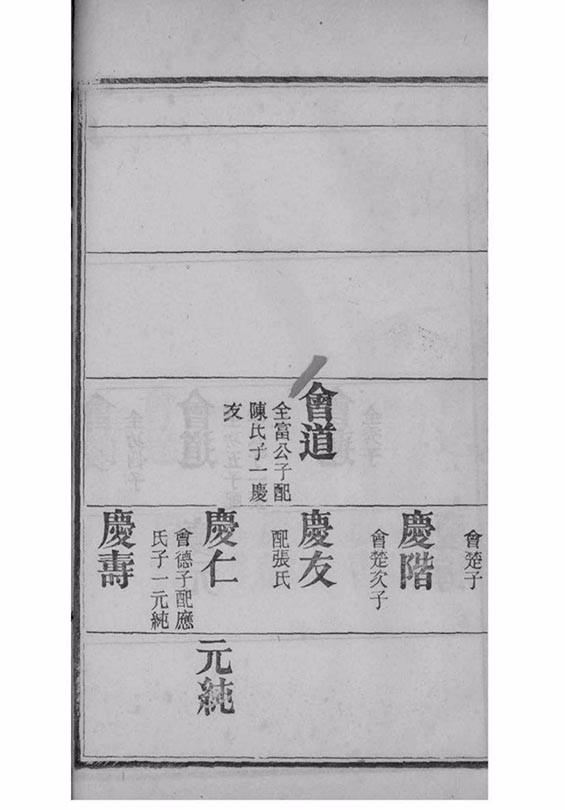 會道
全富公子配
陳氏子一慶
友
會楚子
慶階
會楚次子
慶友
配張氏
慶仁
會德子配應
氏子一元純
慶壽
元純